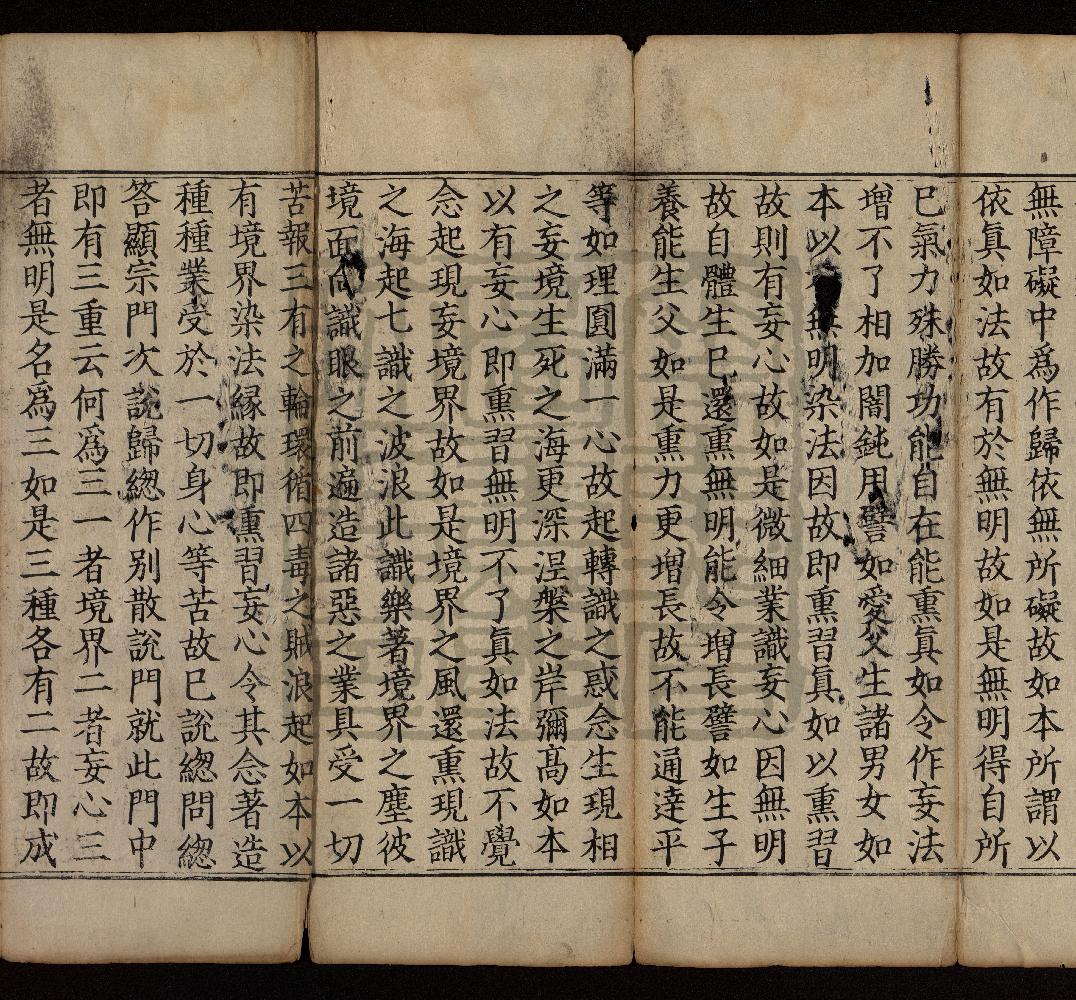 無障礙中爲作歸依無所礙故如本所謂以
依眞如法故有於無明故如是無明得自所
已氣力殊勝功能自在能熏眞如令作妄法
增不了相加闇鈍用譬如愛父生諸男女如
本以無明染法因故即熏習眞如以熏習
故則有妄心故如是微細業識妄心因無明
故自體生已還熏無明能令增長譬如生子
養能生父如是熏力更增長故不能通達平
等如理圓滿一心故起轉識之惑念生現相
之妄境生死之海更深涅槃之岸彌高如本
以有妄心即熏習無明不了眞如法故不覺
念起現妄境界故如是境界之風還熏現識
之海起七識之波浪此識樂著境界之塵彼
境面向識眼之前遍造諸惡之業具受一切
苦報三有之輪環循四毒之賊浪起如本以
有境界染法緣故即熏習妄心令其念著造
種種業受於一切身心等苦故已說總問總
答顯宗門次說歸總作別散說門就此門中
即有三重云何爲三一者境界二者妄心三
者無明是名爲三如是三種各有二故即成